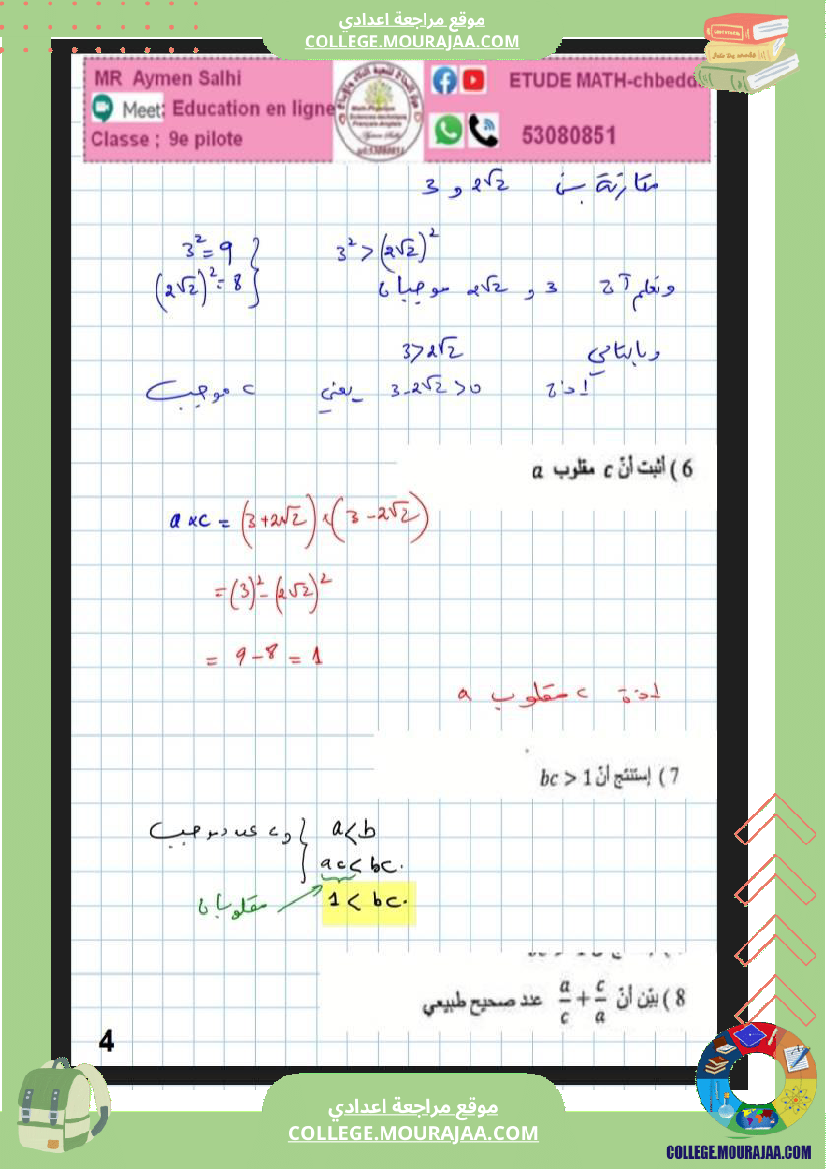 موقع مراجعة اعدادي
COLLEGE.MOURAJAA.COM
MR Aymen Salhi
Meet: Education en ligne
Classe ; 9e pilote
ETUDE MATH-chbedd.
53080851
مقارنة بين 2√2 و 3
3² = 9
(2√2)² = 8
3² > (2√2)²
ونعلم أن 3 و 2√2 موجبان
وبالتالي 3 > 2√2
إذن 3 - 2√2 > 0 يعني c موجب
6 ) أثبت أنّ c مقلوب a
a × c = (3 + 2√2) × (3 - 2√2)
= (3)² - (2√2)²
= 9 - 8 = 1
إذن c مقلوب a
7 ) إستنتج أنّ bc > 1
a < b
و c عدد موجب
ac < bc.
مقلوبان
1 < bc.
8 ) بيّن أنّ a/c + c/a عدد صحيح طبيعي
4
موقع مراجعة اعدادي
COLLEGE.MOURAJAA.COM
COLLEGE.MOURAJAA.COM